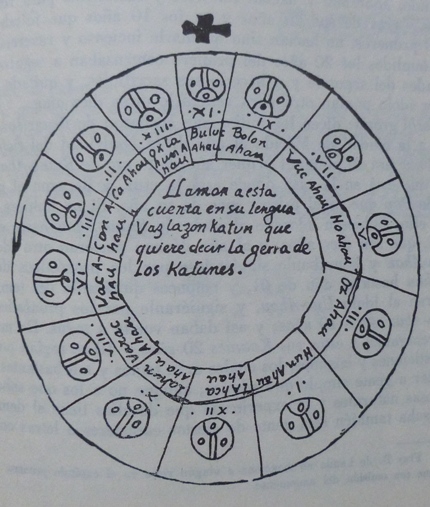 .XI.
Buluc
Ahau
.IX.
Bolon
Ahau
.VII.
Vuc Ahau
.V.
Ho Ahau
.III.
Ox Ahau
.I.
Hun Ahau
.XII.
Lahca
Ahau
.X.
Lahun
Ahau
.VIII.
Vaxac
Ahau
.VI.
Vac A-
hau
.IIII.
Can A-
hau
.II.
Ca Ahau
XIII
Oxla
hun A
hau
Llaman a esta
cuenta en su lengua
Vazlazon katun que
quiere decir la gerra de
los Katunes.